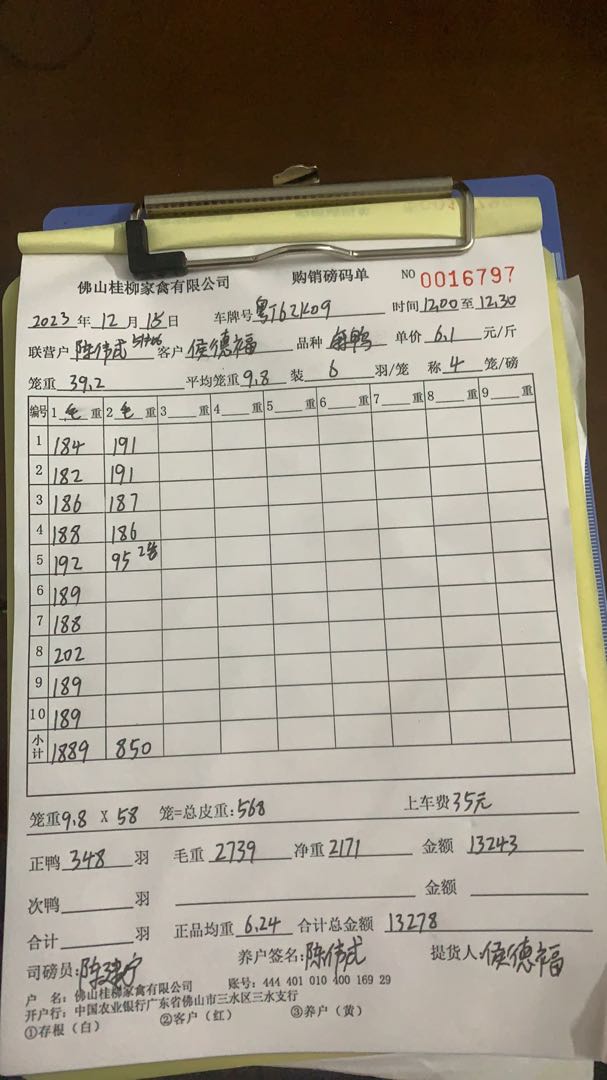 佛山桂柳家禽有限公司 购销磅码单 NO 0016797
2023年12月15日 车牌号粤J62K09 时间12.00至12.30
联营户陈伟成 客户侯德福 品种 鸭 单价6.1元/斤
笼重39.2 平均笼重9.8 装6羽/笼 称4笼/磅
编号 1毛重 2毛重 3重 4重 5重 6重 7重 8重 9重
1 184 191
2 182 191
3 186 187
4 188 186
5 192 95 2笼
6 189
7 188
8 202
9 189
10 189
小计 1889 850
笼重9.8 X 58 笼=总皮重:568 上车费35元
正鸭348羽 毛重2739 净重2171 金额13243
次鸭 羽 金额
合计 羽 正品均重6.24 合计总金额13278
司磅员: 养户签名:陈伟成 提货人:侯德福
户 名:佛山桂柳家禽有限公司 账号:444 401 010 400 169 29
开户行:中国农业银行广东省佛山市三水区三水支行
①存根(白) ②客户(红) ③养户(黄)